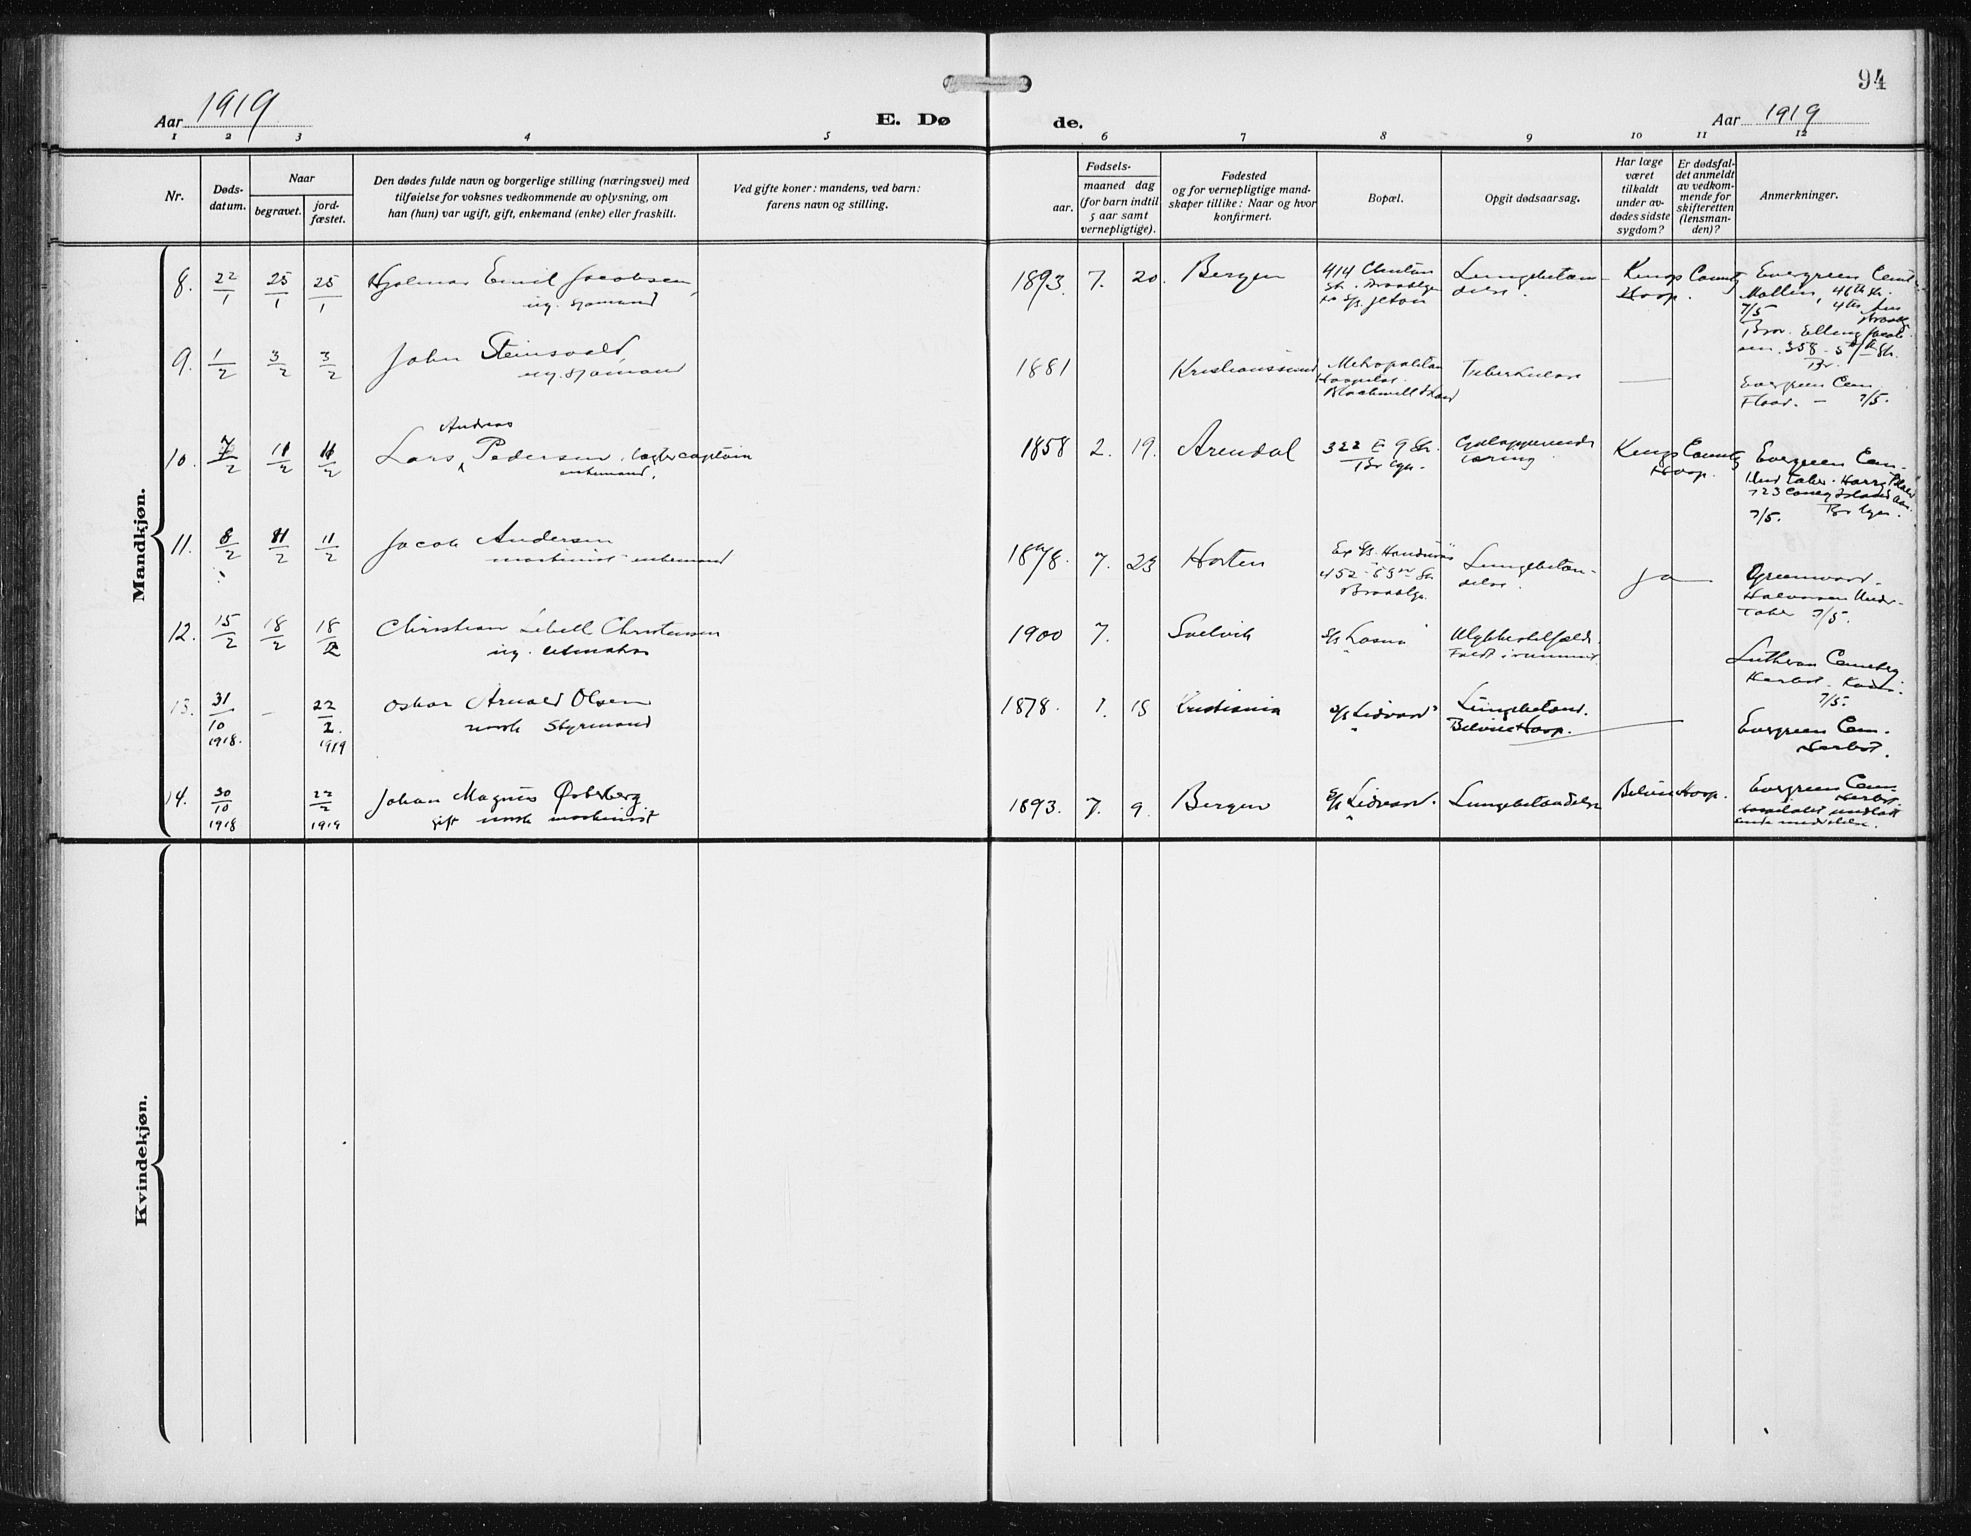 94
Aar 1919
E. Dø
de.
Aar 1919
1 2 3 4 5 6 7 8 9 10 11 12
Nr.
Døds-
datum.
Naar
begravet.
jord-
fæstet.
Den dødes fulde navn og borgerlige stilling (næringsvei) med
tilføielse for voksnes vedkommende av oplysning, om
han (hun) var ugift, gift, enkemand (enke) eller fraskilt.
Ved gifte koner: mandens, ved barn:
farens navn og stilling.
Fødsels-
aar.
maaned dag
(for barn indtil
5 aar samt
vernepligtige).
Fødested
og for vernepligtige mand-
skaper tillike: Naar og hvor
konfirmert.
Bopæl.
Opgit dødsaarsag.
Har læge
været
tilkaldt
under av-
dødes sidste
sygdom?
Er dødsfal-
det anmeldt
av vedkom-
mende for
skifteretten
(lensman-
den)?
Anmerkninger.
Mandkjøn.
8. 22/1 25/1 25/1 Hjalmar Emil Jacobsen,
ug. sjømand
1893. 7. 20. Bergen
414 Clinton
St. Brooklyn
Lungebetæn-
delse.
Kings County
Hosp.
Evergreen Cemt
46th St.
4th Ave
7/5
Bror. Elling Jacob
sen. 358 - 5th St.
Br.
9. 1/2 3/2 3/2 John Steinsvald,
ug. sjømand
1881 Kristianssund
Metropolitan
Hospital.
Tuberkulose
—
Evergreen Cem.
— 7/5.
10. 7/2 11/2 11/2
Andreas
Lars Pedersen,
enkemand.
1858 2. 19. Arendal
322 E 9 St.
Br lyn.
tæring
Kings County
Hosp.
Evergreen Cem-
Und taker. Harry
723 Coney Island Av.
7/5. Br lyn.
11. 8/2 11/2 11/2 Jacob Andersen
maskinist - enkemand
1878. 7. 23 Horten
452 - 53rd St
Brooklyn.
Lungebetæn-
delse.
ja —
Greenwood.
Halvorsen Under-
taker 7/5.
12. 15/2 18/2 18/2 Christian Libell Christensen
ug.
1900 7. Svelvik
Ulykkestilfælde.
Faldt i rummet.
Lutheran Cemetery
7/5.
13. 31/10 1918. — 22/2. 1919
Oskar Arnold Olsen
norsk Styrmand
1878. 1. 15 Kristiania
S/S Lidvard
Lungebetænd.
Hosp. —
Evergreen Cem.
14. 30/10 1918 22/2 1919
Johan Magnus Østberg.
gift norsk maskinist
1893. 7. 9. Bergen
S/S Lidvard.
Lungebetændelse
Hosp.
Evergreen Cem.
Kvindekjøn.